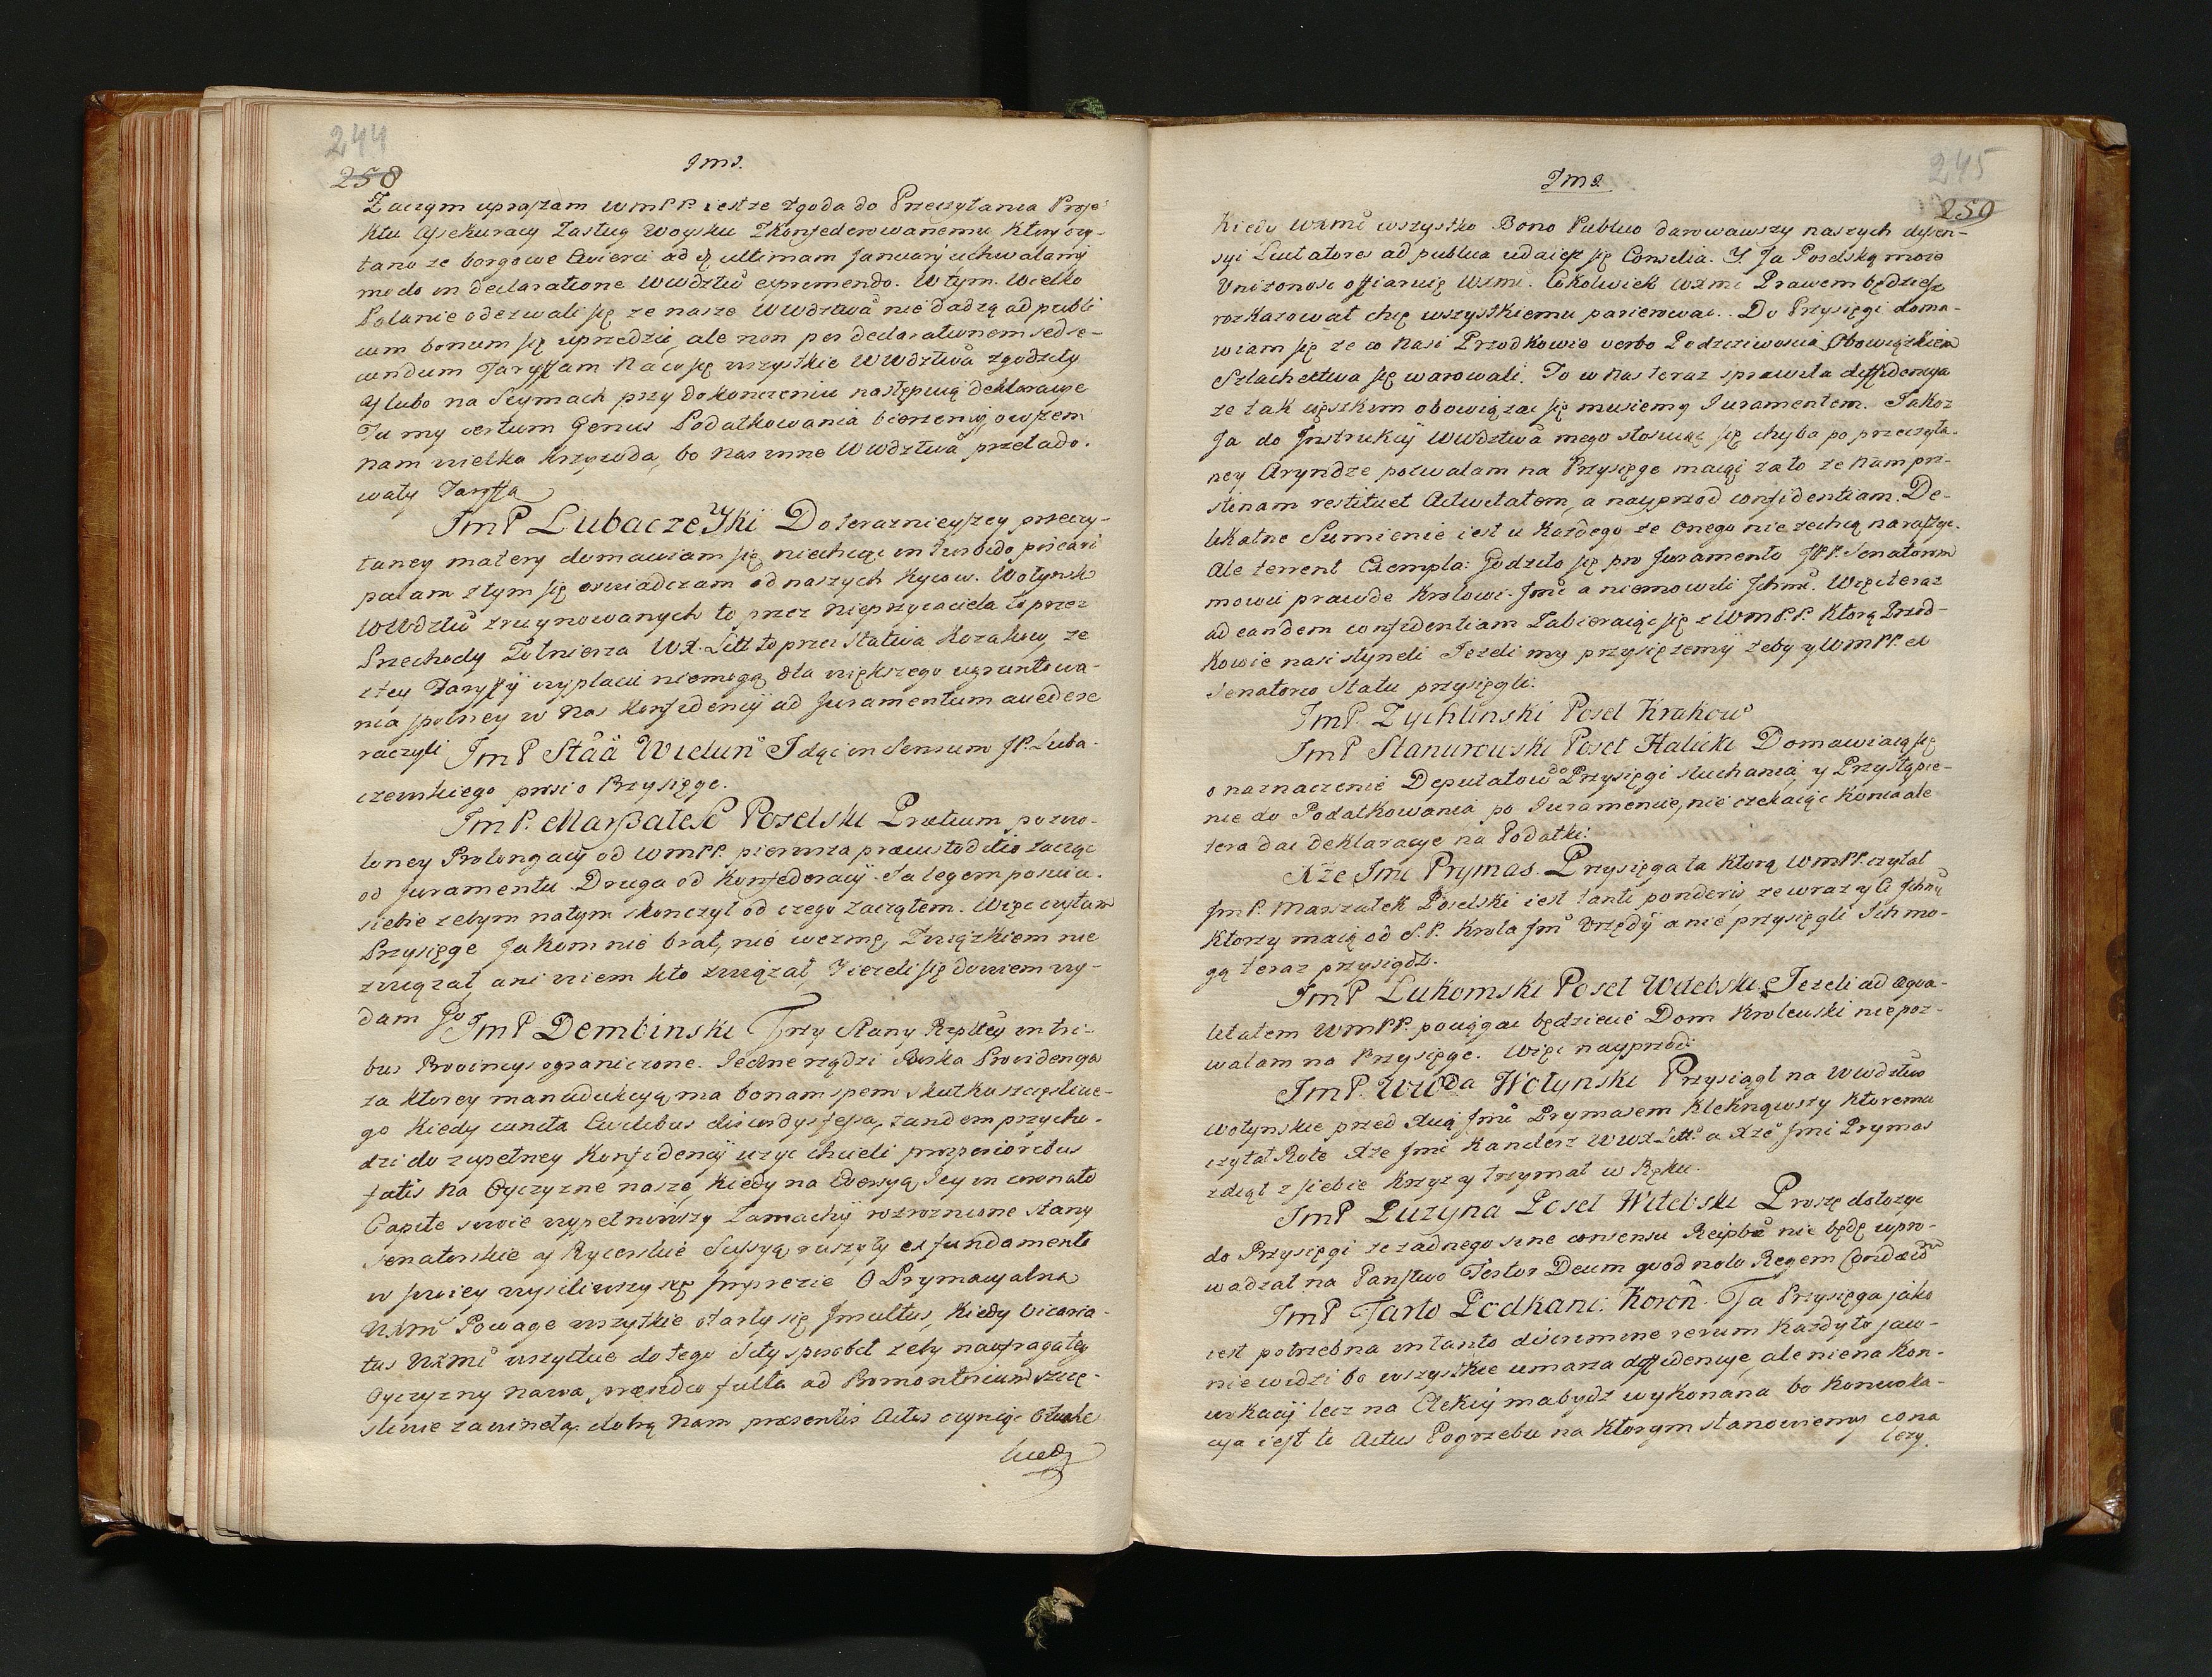 244
258
Jms.
Zaczym upraszam WmPP. iest ze zgoda do Przeczytania Proje-
ktu Assekuracy Zasług Woysku Zkonfederowanemu, Ktory czy-
tano ze borgowe Cwierci ad ultimam January uchwalamy
modo in declaratione Wwdztw exprimendo. W tym. Wielko
Polanie odezwali się ze nasze Wwdztwa nie dadzą ad publi
cum bonum się uprzedzić, ale non per declarationem sed se-
cundum Taryffam na co się wszystkie Wwdztwa zgodziły
y lubo na Seymach przy dokonczeniu następuią deklaracye
Tu my certum Genus Podatkowania bierzemy owszem
nam wielka krzywda, bo nas inne Wwdztwa przelado-
wały Taryffą
JmP Lubaczewski Do terazniejszey przeczy-
taney matery domawiam się, niechcąc in turbido piscari
palam z tym się oswiadczam od naszych Kycow. Wołynsk
Wwdztw zruynowanych to przez Nieprzyiaciela to przez
Przechody Zołnierza WX. Litt to przez Statwa Kozakow, ze
z tey Taryffy wypłacic niemogą dla większego ugruntowa-
nia społney w nas konfidency ad Juramentum accedere
raczyli JmP Stää Wielun Idąc in Sensum JP. Luba-
czewskiego prosi o Przysięgę.
JmP. Marszałek Poselski Pretium pozwo-
loney Prolongacy od WmPP. pierwsza praecustoditio zacząc
od Juramentu Druga od Konfederacy. Ja legem posui
siebie zebym na tym skonczył od czego zacząłem. Więc czytam
Przysięgę Jakom nie brał, nie wezmę, Związkiem nie
związał, ani wiem kto związał, Jiezeli się dowiem wy-
dam go JmP Dembinski Trzy Stany Rzpltey in tri-
bus Provincys ograniczone. Jedne rządzi Boska Providencya
za ktorey manudukcyą ma bonam spem skutku szczęsliwe-
go Kiedy cuncta Civilibus discordys fessa, tandem przycho-
dzi do zupełney Konfidency uzyc chcieli prosperioribus
fatis na Oyczyznę naszę, kiedy na Ewersyą Jey in coronato
Capite swoie wypełniwszy Zamachy rozroznione stany
Senatorskie y Rycerskie ruszyły ex fundamento
w swoiey wysiliwszy się Jmprezie O Prymacyalna
WXm Powagę wszytkie starły się Jnsultus, kiedy Vicaria-
tus WXmi wszytkie do tego Siły sposobił zeby naufragałey
Oyczyzny Nawa, praesidio fulta ad Promontorium szczę-
sliwie zawineła. dobrą nam praesentis Actus czyniąc Otuchę
kiedy
Jms.
245
259
Kiedy WXmć wszystko Bono Publico darowawszy naszych dissen-
syi Scutatores ad publica udaiesz się Consilia. Y Ja Poselską moię
Unizonosc offiaruię WXmć. Cokolwiek WXmć Prawem będziesz
rozkazował chcę wszystkiemu parierować. Do Przysięgi doma-
wiam się ze co Nasi Przodkowie verbo Podzciwoscią Obowiązkiem
Szlachectwa się warowali. To w nas teraz sprawiła diffidencya
ze tak cięszkim obowiązac się musiemy Juramentem. Jakoz
Ja do Jnstrukcij Wwdztwa mego stosuiąc się chyba po przeczyta-
ney Aryndze pozwalam na Przysięgę maiąc za to ze nam pri-
stinam restituet Activitatem, a nayprzod confidentiam. De-
likatne Sumienie iest u Kozdego ze onego nie zechcą narazyc.
Ale terrent Exempla: Godziło się pro Juramento JPP. Senatorom
mowic prawdę Krolowi Jmć a niemowili Jchmć. Więc teraz
ad eandem confidentiam Zabieraiąc się z WmPP. Ktorą Przod-
kowie nasi słyneli Jezeli my przysięzemy zeby y WmPP. ex
Senatorio Statu przysięgli.
JmP. Zychlinski Poseł Krakow
JmP Stanurowski Poseł Halicki Domawiaią się
o naznaczenie Deputatow do Przysięgi słuchania y Przystąpie-
nie do Podatkowania po Juramencie, nie czekaiąc konca ale
teraz dac deklaracye na Podatki.
Xze Jmc Prymas. Przysięga ta ktorą WmPP. czytał
JmP. Marszałek Poselski iest tanti ponderis ze wraz y Ci Jchmć
Ktorzy maią od S.P. Krola Jmć Urzędy a nie przysięgli Jch mo-
gą teraz przysiądz.
JmP Lukomski Poseł Witebski. Jezeli ad aequa-
litatem WmPP. pociągac będziecie Dom Krolewski niepoz-
walam na Przysięgę. Więc nayprzod
JmP. Wda Wołynski Przysiągł na Wwdztwo
wołynskie przed Xcią Jmć Prymasem klęknąwszy ktoremu
czytał Rotę Xze Jmć Kanclerz WWX Litt. a Xze Jmc Prymas
zdiął z siebie Krzyz y trzymał w Ręku.
JmP Puzyna Poseł Witebski Proszę dołozyc
do Przysięgi ze zadnego sine consensu Reipbcae nie będę wpro-
wadzał na Panstwo Testor Deum quod nolo Regem Condaeum
JmP Tarło Podkanc: Koron. Ta Przysięga jako
iest potrzebna in tanto discrimine rerum kazdy to jaw-
nie widzi bo wszystkie umarza diffidencye, ale nie na Kon-
wokacij lecz na Elekcij ma bydz wykonana bo Konwoka-
cya iest to Actus Pogrzebu na ktorym stanowiemy co na-
lezy.